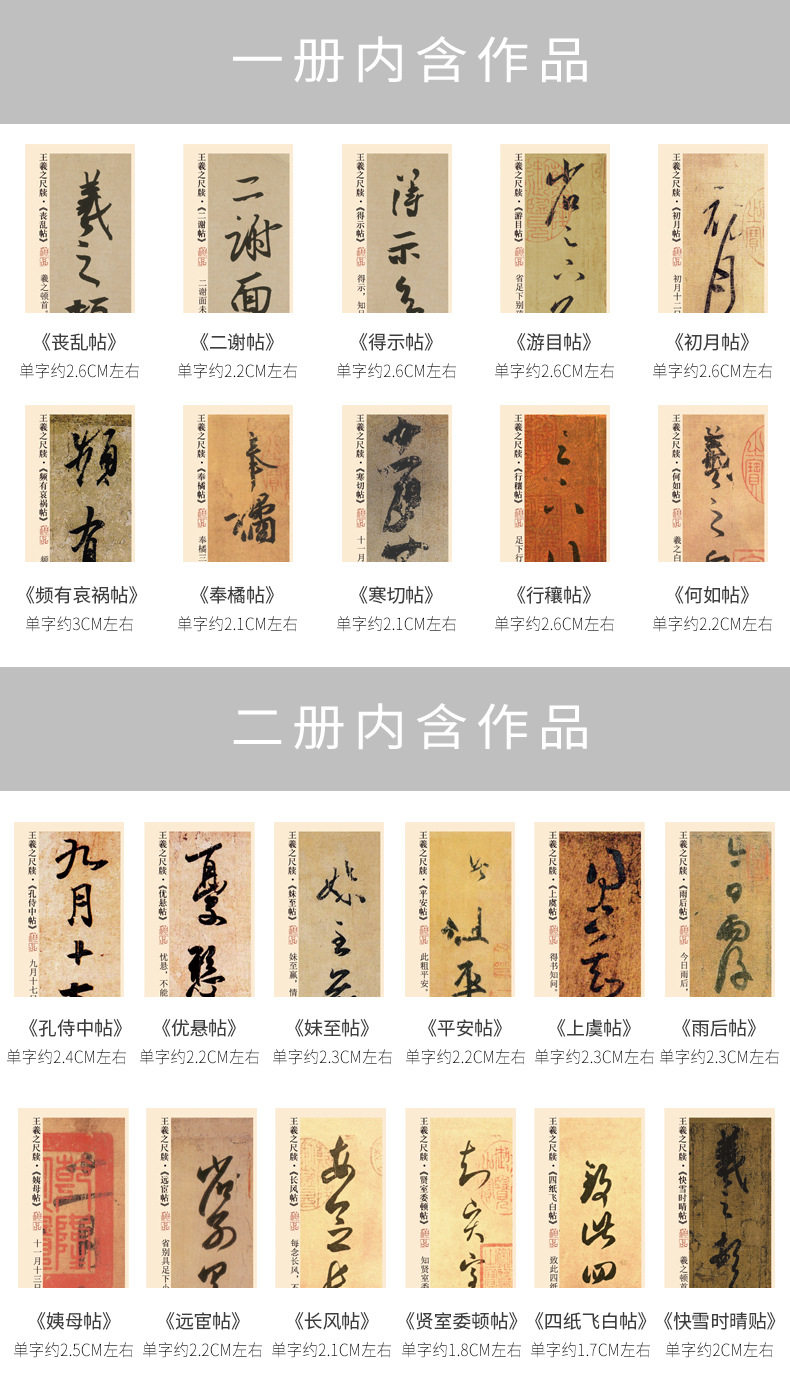 一册内含作品
王羲之尺牍·《丧乱帖》 羲之顿首。
王羲之尺牍·《二谢帖》 二谢面未
王羲之尺牍·《得示帖》 得示,知
王羲之尺牍·《游目帖》 省足下别
王羲之尺牍·《初月帖》 初月十二
羲之顿
二谢面
得示
省
初月
《丧乱帖》
《二谢帖》
《得示帖》
《游目帖》
《初月帖》
单字约2.6CM左右
单字约2.2CM左右
单字约2.6CM左右
单字约2.6CM左右
单字约2.6CM左右
王羲之尺牍·《频有哀祸帖》
王羲之尺牍·《奉橘帖》 奉橘三
王羲之尺牍·《寒切帖》 十一月
王羲之尺牍·《行穰帖》 足下行
王羲之尺牍·《何如帖》 羲之白
频有
奉橘
十一月
足下行
羲之白
《频有哀祸帖》
《奉橘帖》
《寒切帖》
《行穰帖》
《何如帖》
单字约3CM左右
单字约2.1CM左右
单字约2.1CM左右
单字约2.6CM左右
单字约2.2CM左右
二册内含作品
王羲之尺牍·《孔侍中帖》 九月十七
王羲之尺牍·《忧悬帖》 忧悬,不能
王羲之尺牍·《妹至帖》 妹至羸,情
王羲之尺牍·《平安帖》 此粗平安。
王羲之尺牍·《上虞帖》 得书知问。
王羲之尺牍·《雨后帖》 今日雨后,
九月十七
忧悬
妹至
此粗平
得书知
今日雨后
《孔侍中帖》
《优悬帖》
《妹至帖》
《平安帖》
《上虞帖》
《雨后帖》
单字约2.4CM左右
单字约2.2CM左右
单字约2.3CM左右
单字约2.2CM左右
单字约2.3CM左右
单字约2.3CM左右
王羲之尺牍·《姨母帖》 十一月十三日
王羲之尺牍·《远宦帖》 省别具足下小
王羲之尺牍·《长风帖》 每念长风,不
王羲之尺牍·《贤室委顿帖》 知贤室委
王羲之尺牍·《四纸飞白帖》 致此四纸
王羲之尺牍·《快雪时晴帖》 羲之顿首
十一月
省别具
每念长
知贤室
致此四
羲之顿
《姨母帖》
《远宦帖》
《长风帖》
《贤室委顿帖》
《四纸飞白帖》
《快雪时晴贴》
单字约2.5CM左右
单字约2.2CM左右
单字约2.1CM左右
单字约1.8CM左右
单字约1.7CM左右
单字约2CM左右